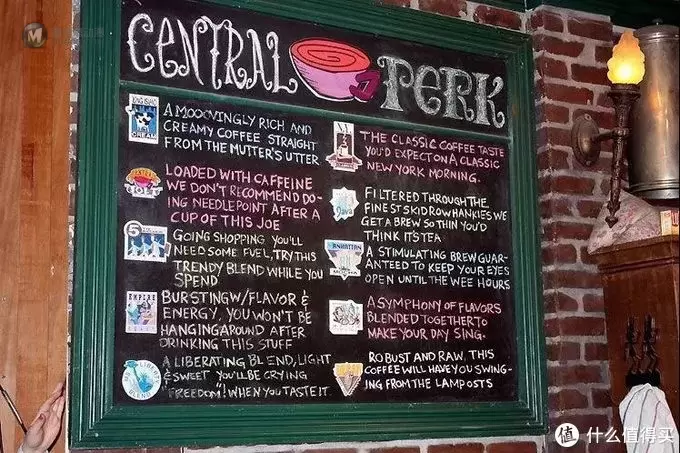 CENTRAL PERK
A MOOOVINGLY RICH AND
CREAMY COFFEE STRAIGHT
FROM THE MUTTER'S UTTER
LOADED WITH CAFFEINE
WE DON'T RECOMMEND DO-
ING NEEDLEPOINT AFTER A
CUP OF THIS JOE
5
GOING SHOPPING YOU'LL
NEED SOME FUEL, TRY THIS
TRENDY BLEND WHILE YOU
SPEND
EMPIRE
BURSTING W/FLAVOR &
ENERGY, YOU WON'T BE
HANGING AROUND AFTER
DRINKING THIS STUFF
LIBERTY
BLEND
A LIBERATING BLEND, LIGHT
& SWEET YOU'LL BE CRYING
"FREEDOM"! WHEN YOU TASTE IT
THE CLASSIC COFFEE TASTE
YOU'D EXPECT ON A CLASSIC
NEW YORK MORNING.
Java
FILTERED THROUGH THE
FINEST SKID ROW HANKIES WE
GET A BREW SO THIN YOU'D
THINK ITS TEA
MANHATTAN
A STIMULATING BREW GUAR-
ANTEED TO KEEP YOUR EYES
OPEN UNTIL THE WEE HOURS
A SYMPHONY OF FLAVORS
BLENDED TOGETHER TO
MAKE YOUR DAY SING.
ROBUST AND RAW, THIS
COFFEE WILL HAVE YOU SWING-
ING FROM THE LAMPOSTS
值 什么值得买